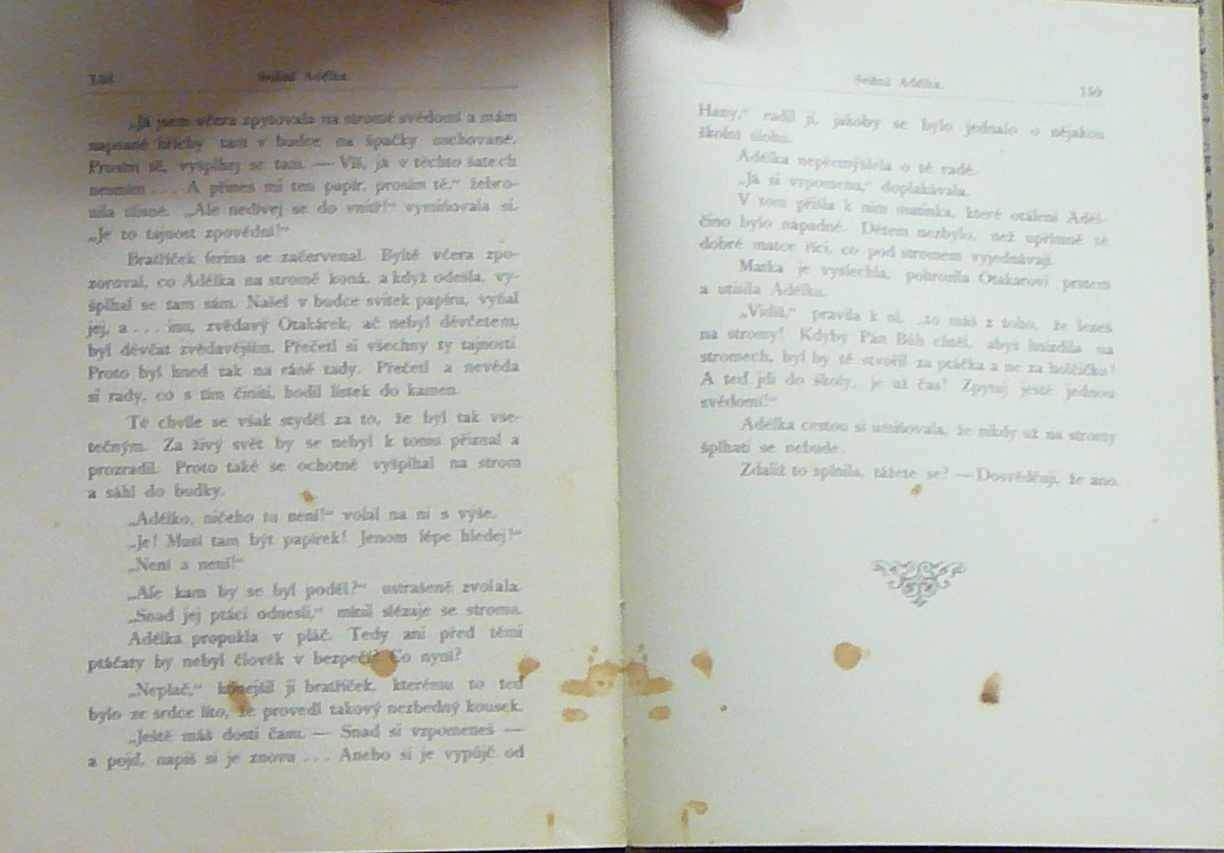 158
Adélka.
„Já jsem včera zpytovala na stromě svědomí a mám
napsané hříchy tam v budce na špačky uschované.
Prosím tě, vyšplhej se tam. — Víš, já v těchto šatech
nesmím . . . A přines mi ten papír, prosím tě,“ žebro-
nila úsně. „Ale nedívej se do vnitř!“ vymiňovala si.
„Je to tajnost zpovědní!“
Bratříček ferina se začervenal. Byltě včera zpo-
zoroval, co Adélka na stromě koná, a když odešla, vy-
šplhal se tam sám. Našel v budce svitek papíru, vyňal
jej, a . . . inu, zvědavý Otakárek, ač nebyl děvčetem,
byl děvčat zvědavějším. Přečetl si všechny ty tajnosti
Proto byl hned tak na ráně tady. Přečetl a nevěda
si rady, co s tím činiti, hodil lístek do kamen.
Té chvíle se však styděl za to, že byl tak vše-
tečným. Za živý svět by se nebyl k tomu přiznal a
prozradil. Proto také se ochotně vyšplhal na strom
a sáhl do budky.
„Adélko, ničeho tu není!“ volal na ni s výše.
„Je! Musí tam být papírek! Jenom lépe hledej!“
„Není a není!“
„Ale kam by se byl poděl?“ ustrašeně zvolala.
„Snad jej ptáci odnesli,“ mínil slézaje se stromu.
Adélka propukla v pláč. Tedy ani před těmi
ptáčaty by nebyl člověk v bezpečí? Co nyní?
„Neplač,“ konejšil ji bratříček, kterému to teď
bylo ze srdce líto, že provedl takový nezbedný kousek.
„Ještě máš dosti času. — Snad si vzpomeneš —
a pojď, napiš si je znovu . . . Anebo si je vypůjč od
Adélka.
159
Hany,“ radil jí, jakoby se bylo jednalo o nějakou
školní úlohu.
Adélka nepřemýšlela o té radě.
„Já si vzpomenu,“ doplakávala.
V tom přišla k nim matinka, které otálení Adél-
čino bylo nápadné. Dětem nezbylo, než upřímně té
dobré matce říci, co pod stromem vyjednávají.
Matka je vyslechla, pohrozila Otakarovi prstem
a utišila Adélku.
„Vidíš,“ pravila k ní, „to máš z toho, že lezeš
na stromy! Kdyby Pán Bůh chtěl, abys hnízdila na
stromech, byl by tě stvořil za ptáčka a ne za holčičku!
A teď jdi do školy, je už čas! Zpytuj ještě jednou
svědomí!“
Adélka cestou si umiňovala, že nikdy už na stromy
šplhati se nebude.
Zdaliž to splnila, tážete se? — Dosvědčuji, že ano.